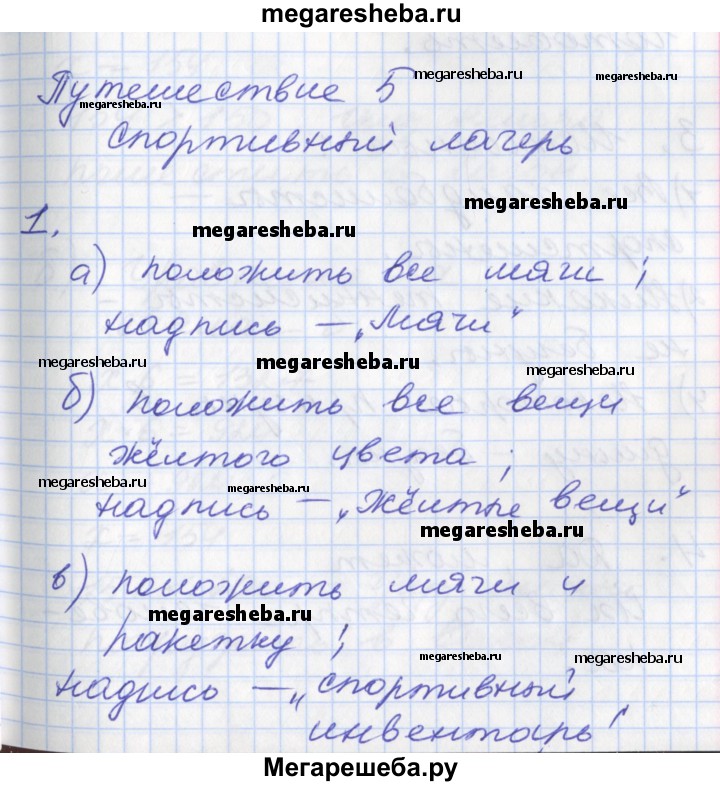 megaresheba.ru
Путешествие 5
megaresheba.ru
megaresheba.ru
megaresheba.ru
Спортивный лагерь
megaresheba.ru
1.
megaresheba.ru
а) положить все мячи ;
надпись – „Мячи“
megaresheba.ru
megaresheba.ru
megaresheba.ru
б) положить все вещи
жёлтого цвета ;
megaresheba.ru
megaresheba.ru
надпись – „жёлтые вещи“
megaresheba.ru
в) положить мячи и
megaresheba.ru
ракетку ;
megaresheba.ru
megaresheba.ru
надпись – „спортивный
инвентарь“
megaresheba.ru
Мегарешеба.ру